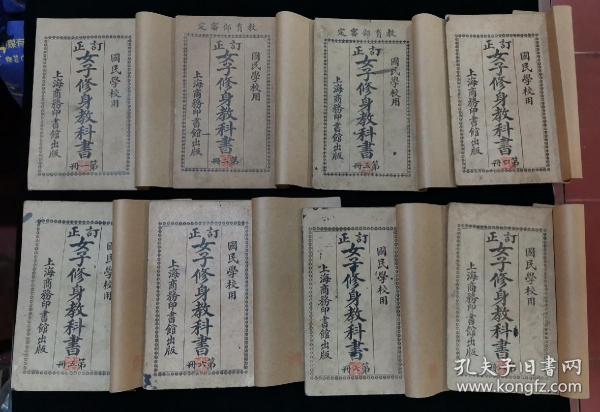 國民學校用
訂正
女子修身教科書
第一冊
上海商務印書館出版
教育部審定
國民學校用
訂正
女子修身教科書
第二冊
上海商務印書館出版
教育部審定
國民學校用
訂正
女子修身教科書
第三冊
上海商務印書館出版
國民學校用
訂正
女子修身教科書
第四冊
上海商務印書館出版
國民學校用
訂正
女子修身教科書
第五冊
上海商務印書館出版
國民學校用
訂正
女子修身教科書
第六冊
上海商務印書館出版
國民學校用
訂正
女子修身教科書
第冊
上海商務印書館出版
國民學校用
訂正
女子修身教科書
第冊
上海商務印書館出版
孔夫子旧书网
www.kongfz.com